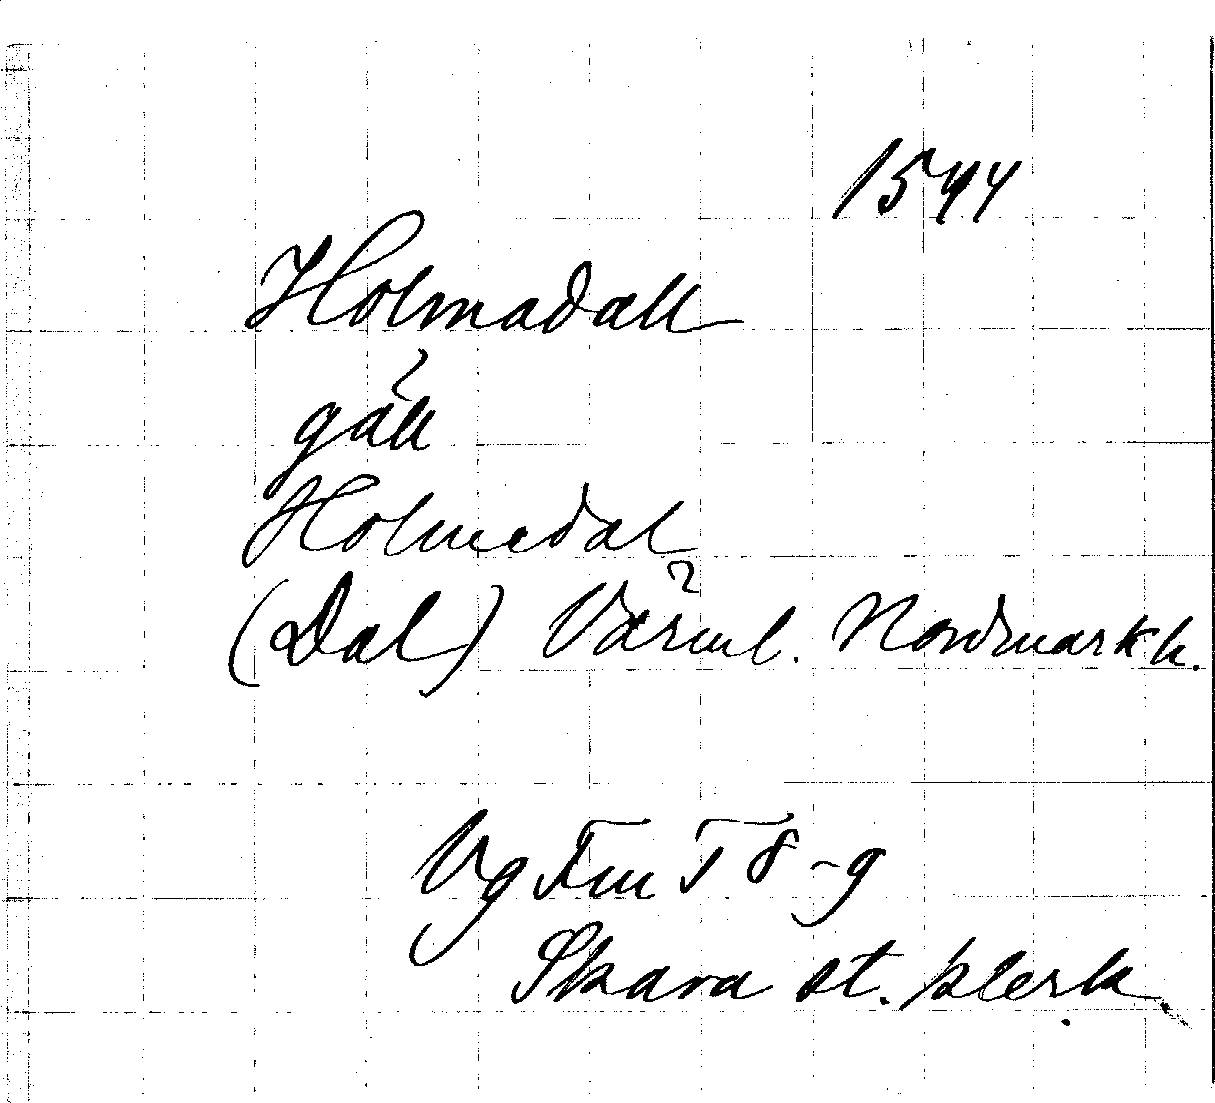 1544
Holmadall
gäll
Holmedal
(Dal) Värml. Nordmark h.
Vg Fm T 8-9
Skara st. klerk.